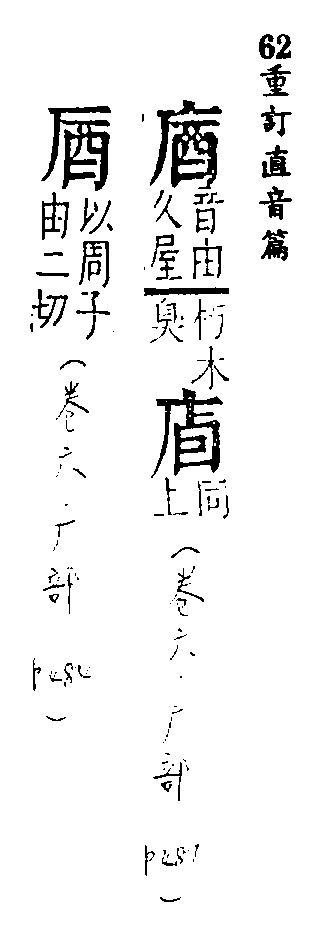 62重訂直音篇
庮音由久屋朽木臭同上（卷六．广部 p481）
以周子由二切（卷六．厂部